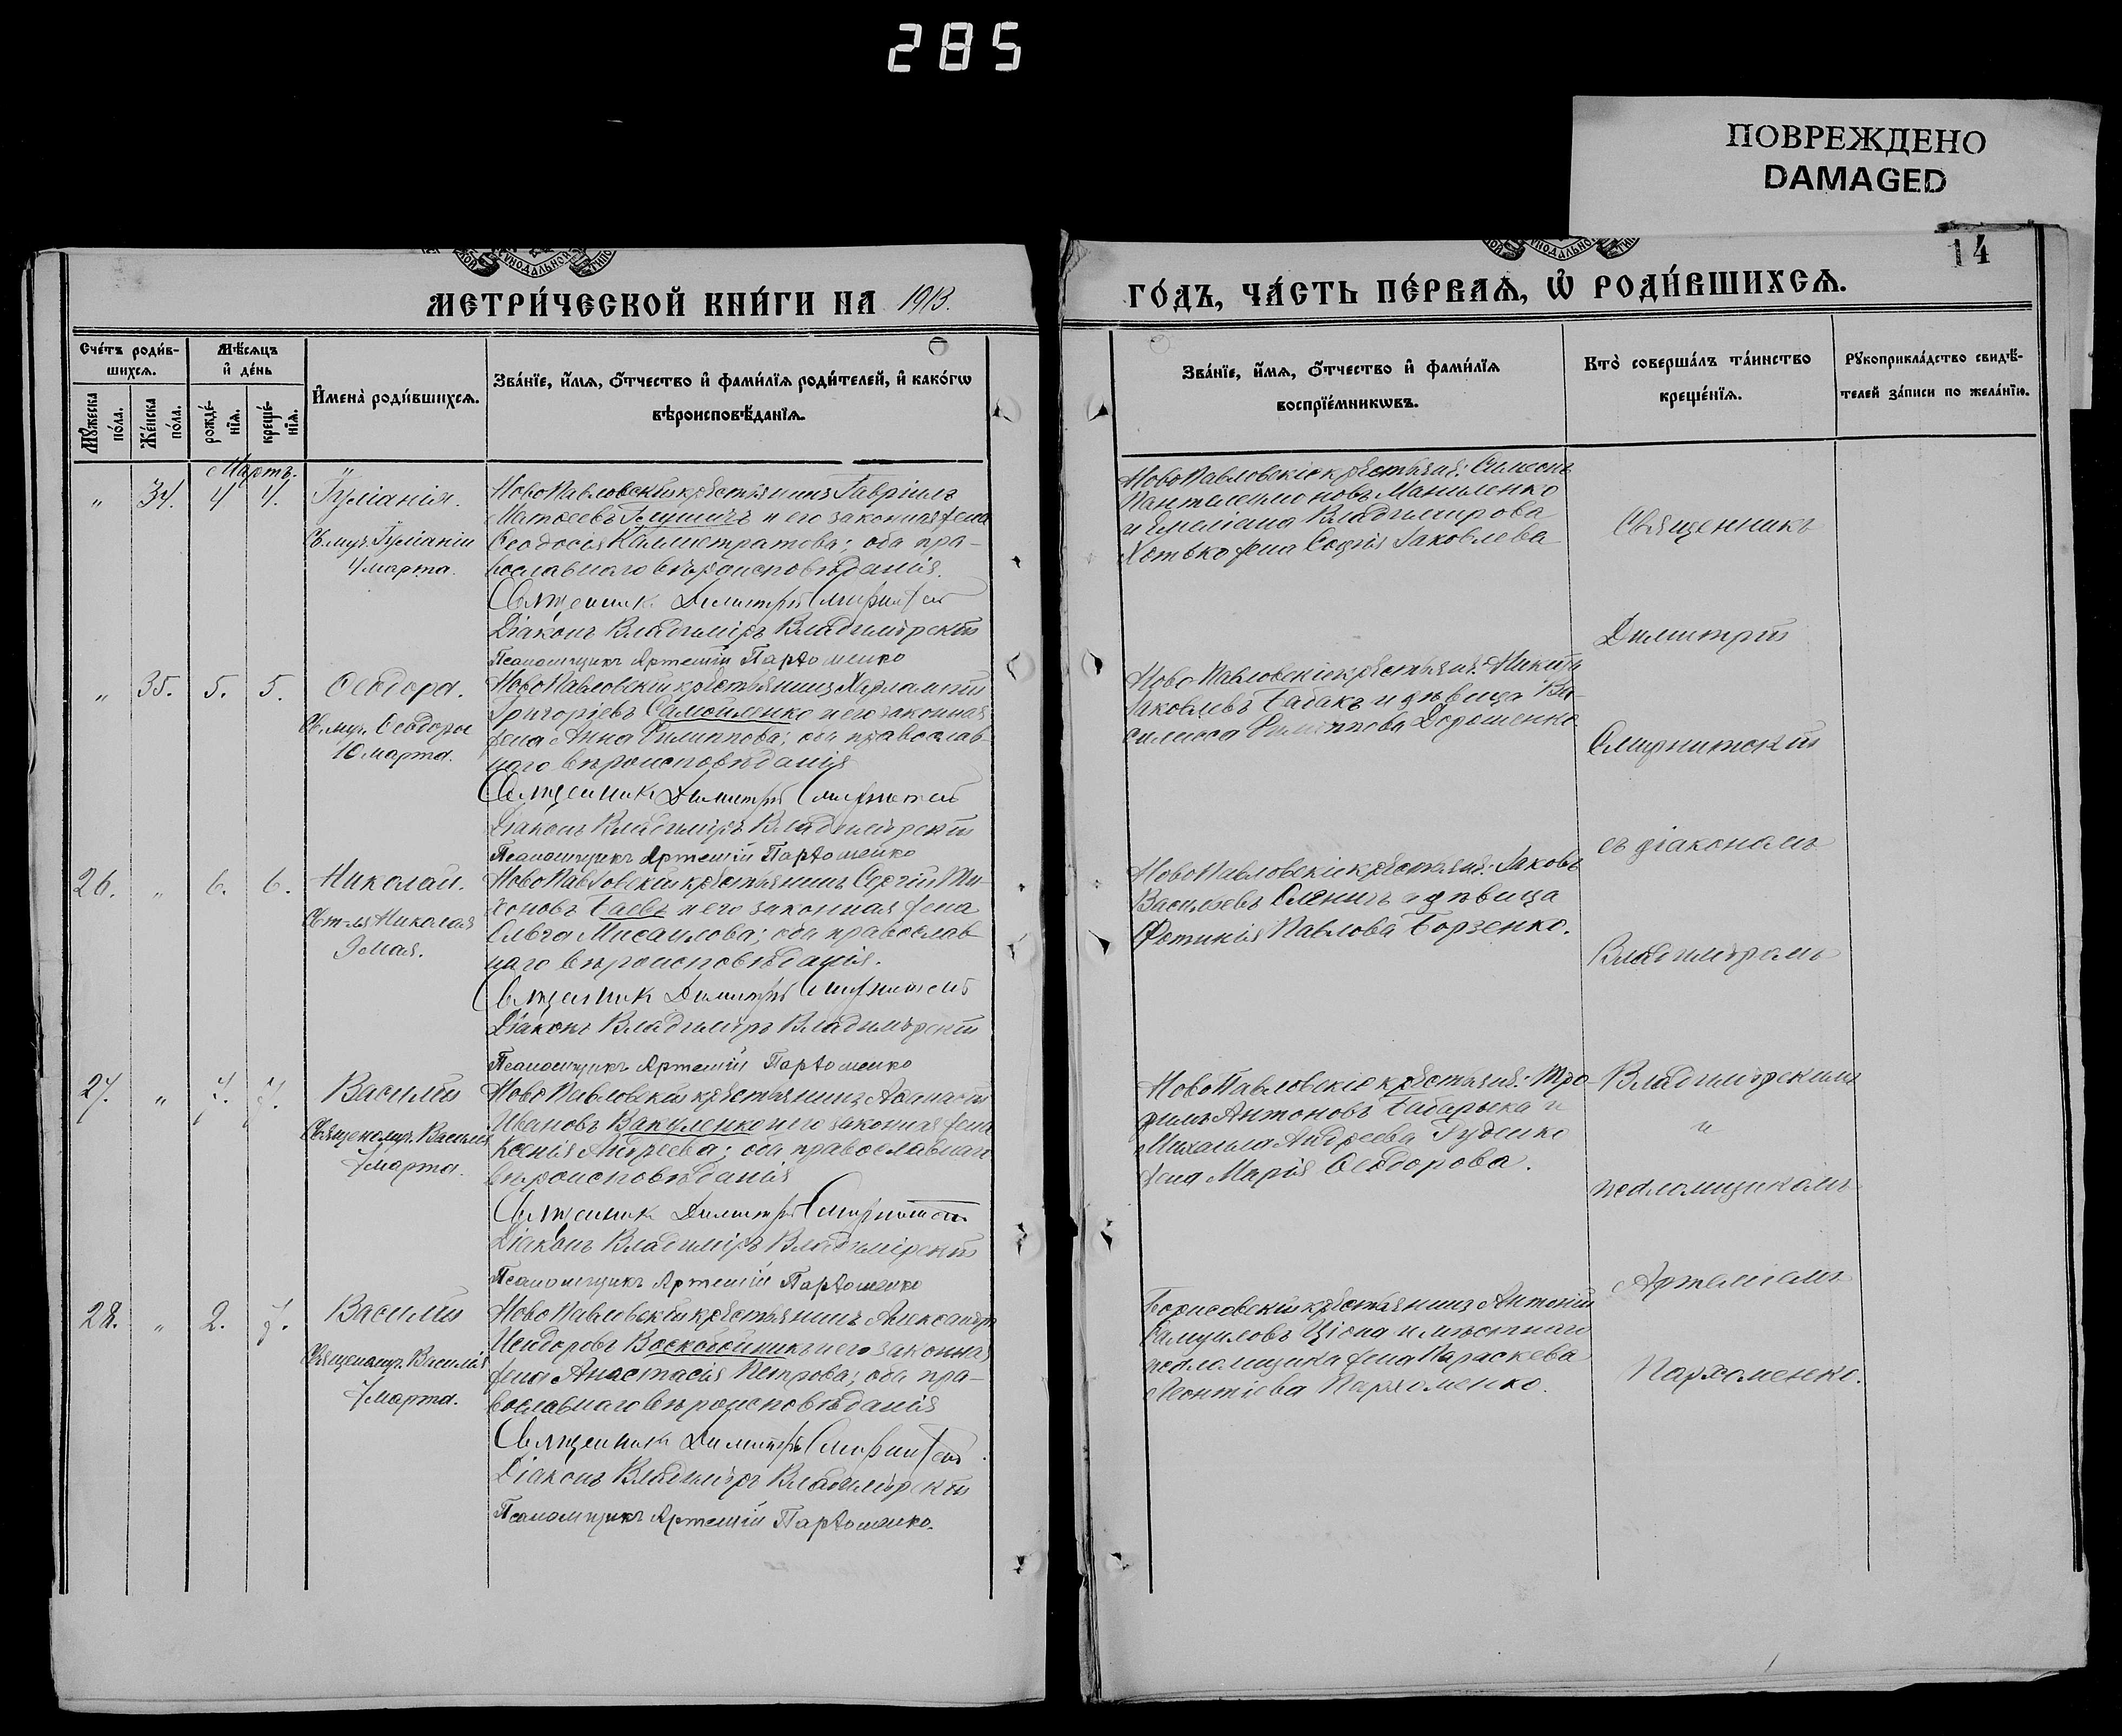 285
ПОВРЕЖДЕНО
DAMAGED
14
МЕТРИ́ЧЕСКОЙ КНИ́ГИ НА 1913.
ГО́ДЪ, ЧА́СТЬ ПЕ́РВАѦ, Ѡ҆ РОДИ́ВШИХСѦ.
Сче́тъ роди́в-
шихсѧ.
Мѣ́сѧцъ
и҆ де́нь
Мꙋ́жеска
по́ла.
Же́нска
по́ла.
рожде́-
нїѧ.
креще́-
нїѧ.
И҆мена̀ роди́вшихсѧ.
Зва́нїе, и҆́мѧ, ѻ҆́тчество и҆ фами́лїѧ роди́телей, и҆ како́гѡ
вѣроисповѣ́данїѧ.
Зва́нїе, и҆́мѧ, ѻ҆́тчество и҆ фами́лїѧ
воспрїе́мникѡвъ.
Кто̀ соверша́лъ та́инство
креще́нїѧ.
Рꙋкоприкла́дство свидѣ́-
телей за́писи по жела́нїю.
Мартъ.
" 34. 4 4. Іуліанія.
Св. муч. Іуліаніи
4 марта.
НовоПавловскій крестьянинъ Гавріилъ
Матѳеевъ и его законная жена
Ѳеодосія Каллистратова; оба пра-
вославнаго вѣроисповѣданія.
Священникъ Димитрій Смирнитскій
Діаконъ Владиміръ Владимірскій
Псаломщикъ Артемій Пархоменко
НовоПавловскіе крестьяне: Симеонъ
Пантелеимоновъ Маниленко
и Емеліана Владимирова
Хотько жена Софія Іаковлева
" 35. 5. 5. Ѳеодора.
Св. муч. Ѳеодоры
10 марта.
НовоПавловскій крестьянинъ Харлампій
Григоріевъ Самойленко и его законная
жена Анна Филиппова; оба православ-
наго вѣроисповѣданія
Священникъ Димитрій Смирнитскій
Діаконъ Владиміръ Владимірскій
Псаломщикъ Артемій Пархоменко
НовоПавловскіе крестьяне: Никита
Іаковлевъ Бабакъ и дѣвица Ва-
силисса Филиппова Дорошенко
26. " 6. 6. Николай.
Св-тля Николая
9 мая.
НовоПавловскій крестьянинъ Сергій Ти-
хоновъ Баевъ и его законная жена
Ольга Мисаилова; оба православ-
наго вѣроисповѣданія.
Священникъ Димитрій Смирнитскій
Діаконъ Владиміръ Владимірскій
Псаломщикъ Артемій Пархоменко
НовоПавловскіе крестьяне: Іаковъ
Васильевъ Оленичъ и дѣвица
Фотинія Павлова Борзенко.
27. " 7. 7. Василій
Священомуч. Василія
7 марта.
НовоПавловскій крестьянинъ Аѳанасій
Ивановъ Вакуленко и его законная жена
Ксенія Андреева; оба православнаго
вѣроисповѣданія
Священникъ Димитрій Смирнитскій
Діаконъ Владиміръ Владимірскій
Псаломщикъ Артемій Пархоменко
НовоПавловскіе крестьяне: Тро-
фимъ Антоновъ Бабарыка и
Михаила Андреева Руденко
жена Марія Ѳеодорова.
28. " 2. 7. Василій
Священомуч. Василія
7 марта.
НовоПавловскій крестьянинъ Александръ
Исидоровъ Воскобойникъ и его законная
жена Анастасія Петрова; оба пра-
вославнаго вѣроисповѣданія
Священникъ Димитрій Смирнитскій.
Діаконъ Владиміръ Владимірскій
Псаломщикъ Артемій Пархоменко.
Борисовскій крестьянинъ Антоній
Самуиловъ Ціопа и мѣстнаго
псаломщика жена Параскева
Леонтіева Пархоменко.
Священникъ
Димитрій
Смирнитскій
съ діакономъ
Владиміромъ
Владимірскимъ
и
псаломщикомъ
Артеміемъ
Пархоменко.